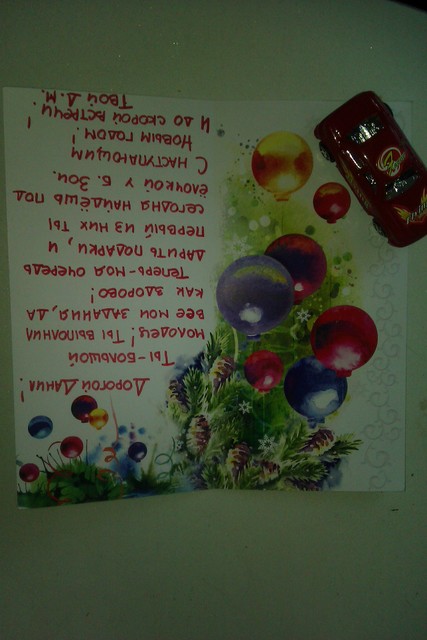 Дорогой Данил!
Ты - большой
молодец! Ты выполнил
все мои задания, да
как здорово!
Теперь - моя очередь
дарить подарки, и
первый из них ты
сегодня найдёшь под
ёлочкой у Б. Зои.
С наступающим
Новым годом!
И до скорой встречи!
Твой Д. М.